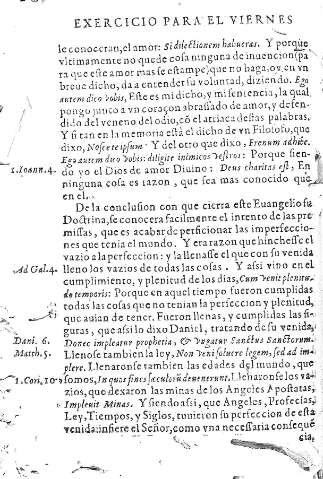 EXERCICIO PARA EL VIERNES
le conoceran, el amor: Si dilectionem habueras. Y porque
vltimamente no quede cosa ninguna de inuencion (pa
ra que este amor mas se estampe) que no haga, oy en vn
breue dicho, da a entender su voluntad, diziendo. Ego
autem dico vobis, Este es mi dicho, y mi sentencia, la qual
pongo junto a vn coraçon abrassado de amor, y defendi
do del veneno del odio, cō el atriaca destas palabras,
Y si tan en la memoria está el dicho de vn Filosofo, que
dixo, Nosce te ipsum. Y del otro que dixo, Frenum adhibe.
Ego autem dico vobis: diligite inimicos vestros: Porque sien-
1. Ioann. 4. do yo el Dios de amor Diuino: Deus charitas est, En
ninguna cosa es razon, que sea mas conocido que
en el.
De la conclusion con que cierra este Euangelio su
Doctrina, se conocera facilmente el intento de las pre
missas, que es acabar de perficionar las imperfeccio-
nes que tenia el mundo. Y era razon que hinchesse el
vazio a la perfeccion: y la llenasse el que con su venida
Ad Gal. 4. lleno los vazios de todas las cosas. Y assi vino en el
cumplimiento, y plenitud de los dias, Cum venit plenitu
do temporis: Porque en aquel tiempo fueron cumplidas
todas las cosas que no tenian la perfeccion y plenitud,
que auian de tener. Fueron llenas, y cumplidas las fi-
guras, que assi lo dixo Daniel, tratando de su venida,
Dani. 6. Donec impleatur prophetia, & vngatur Sanctus Sanctorum.
Matth. 5. Llenose tambien la ley, Non veni soluere legem, sed ad im
plere. Llenaronse tambien las edades del mundo, que
1. Cori. 10 somos, In quos fines sæculorū deuenerunt. Llenaronse los va-
zios, que dexaron las minas de los Angeles Apostatas,
Impleuit Minas. Y siendo assi, que Angeles, Profecias,
Ley, Tiempos, y Siglos, tuuieron su perfeccion de esta
venida: infiere el Señor, como vna necessaria consequē
cia,